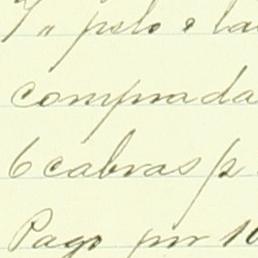 pelo e la
comprada
6 cabras p
Pago por 10